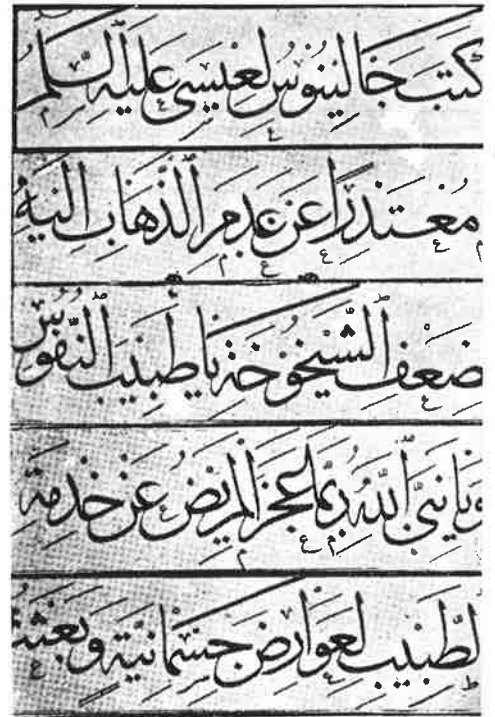 كتب جالينوس لعيسى عليه السلم
معتذرا عن عدم الذهاب اليه
ضعف الشيخوخة يا طبيب النفوس
ويا نبي الله ربما عجز المريض عن خدمة
لطبيب لعوارض جسمانية وبعثت